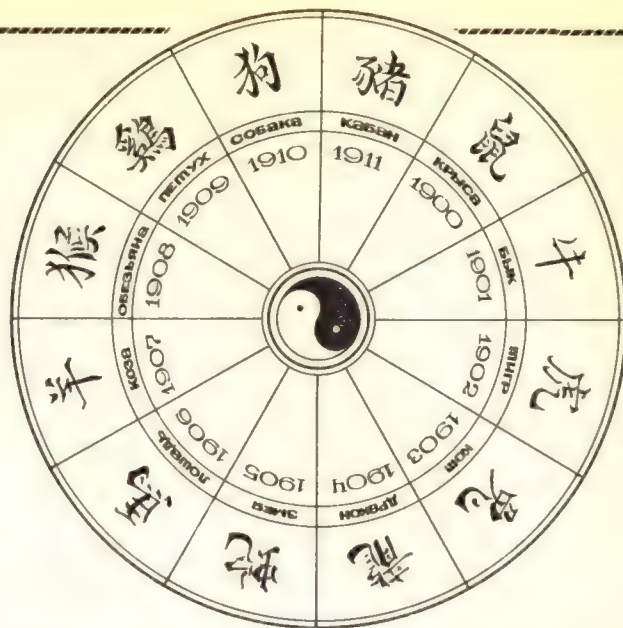 豬
кабан
1911
鼠
крыса
1900
牛
бык
1901
虎
тигр
1902
兔
кот
1903
龍
дракон
1904
蛇
змея
1905
馬
лошадь
1906
羊
коза
1907
猴
обезьяна
1908
鷄
петух
1909
狗
собака
1910